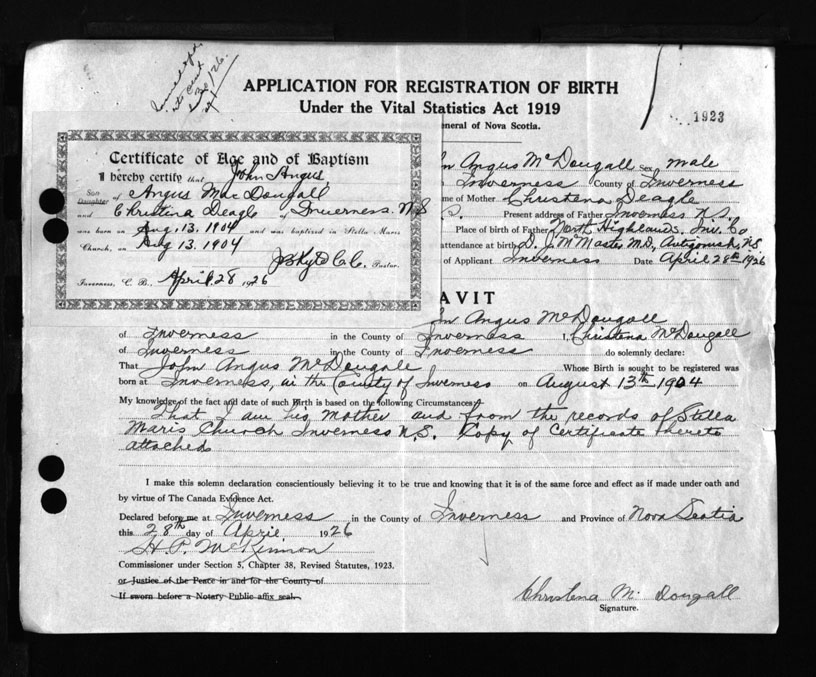 APPLICATION FOR REGISTRATION OF BIRTH
Under the Vital Statistics Act 1919
eneral of Nova Scotia.
1923
Certificate of Age and of Baptism
I hereby certify that John Angus
Son
Daughter of Angus MacDougall
and Christina Deagle of Inverness N S
was born on Aug 13, 1904 and was baptized in Stella Maris
Church, on Aug 13, 1904
Pastor.
Inverness, C. B., April 28 1926
n Angus McDougall Sex male
Inverness County of Inverness
me of Mother Christena Deagle
S. Present address of Father Inverness N.S.
Place of birth of Father North Highlands, Inv. Co
attendance at birth D. J. McMaster M.D., Antigonish, N.S.
of Applicant Inverness Date April 28th 1926
AVIT
Jn Angus McDougall
of Inverness in the County of Inverness I, Christena McDougall
of Inverness in the County of Inverness do solemnly declare:
That John Angus McDougall Whose Birth is sought to be registered was
born at Inverness, in the County of Inverness on August 13th 1904
My knowledge of the fact and date of such Birth is based on the following Circumstances:
That I am his mother and from the records of Stella
Maris Church Inverness N.S. Copy of Certificate hereto
attached
I make this solemn declaration conscientiously believing it to be true and knowing that it is of the same force and effect as if made under oath and
by virtue of The Canada Evidence Act.
Declared before me at Inverness in the County of Inverness and Province of Nova Scotia
this 28th day of April 1926
H. P. McKinnon
Commissioner under Section 5, Chapter 38, Revised Statutes, 1923.
or Justice of the Peace in and for the County of
If sworn before a Notary Public affix seal.
Christena McDougall
Signature.